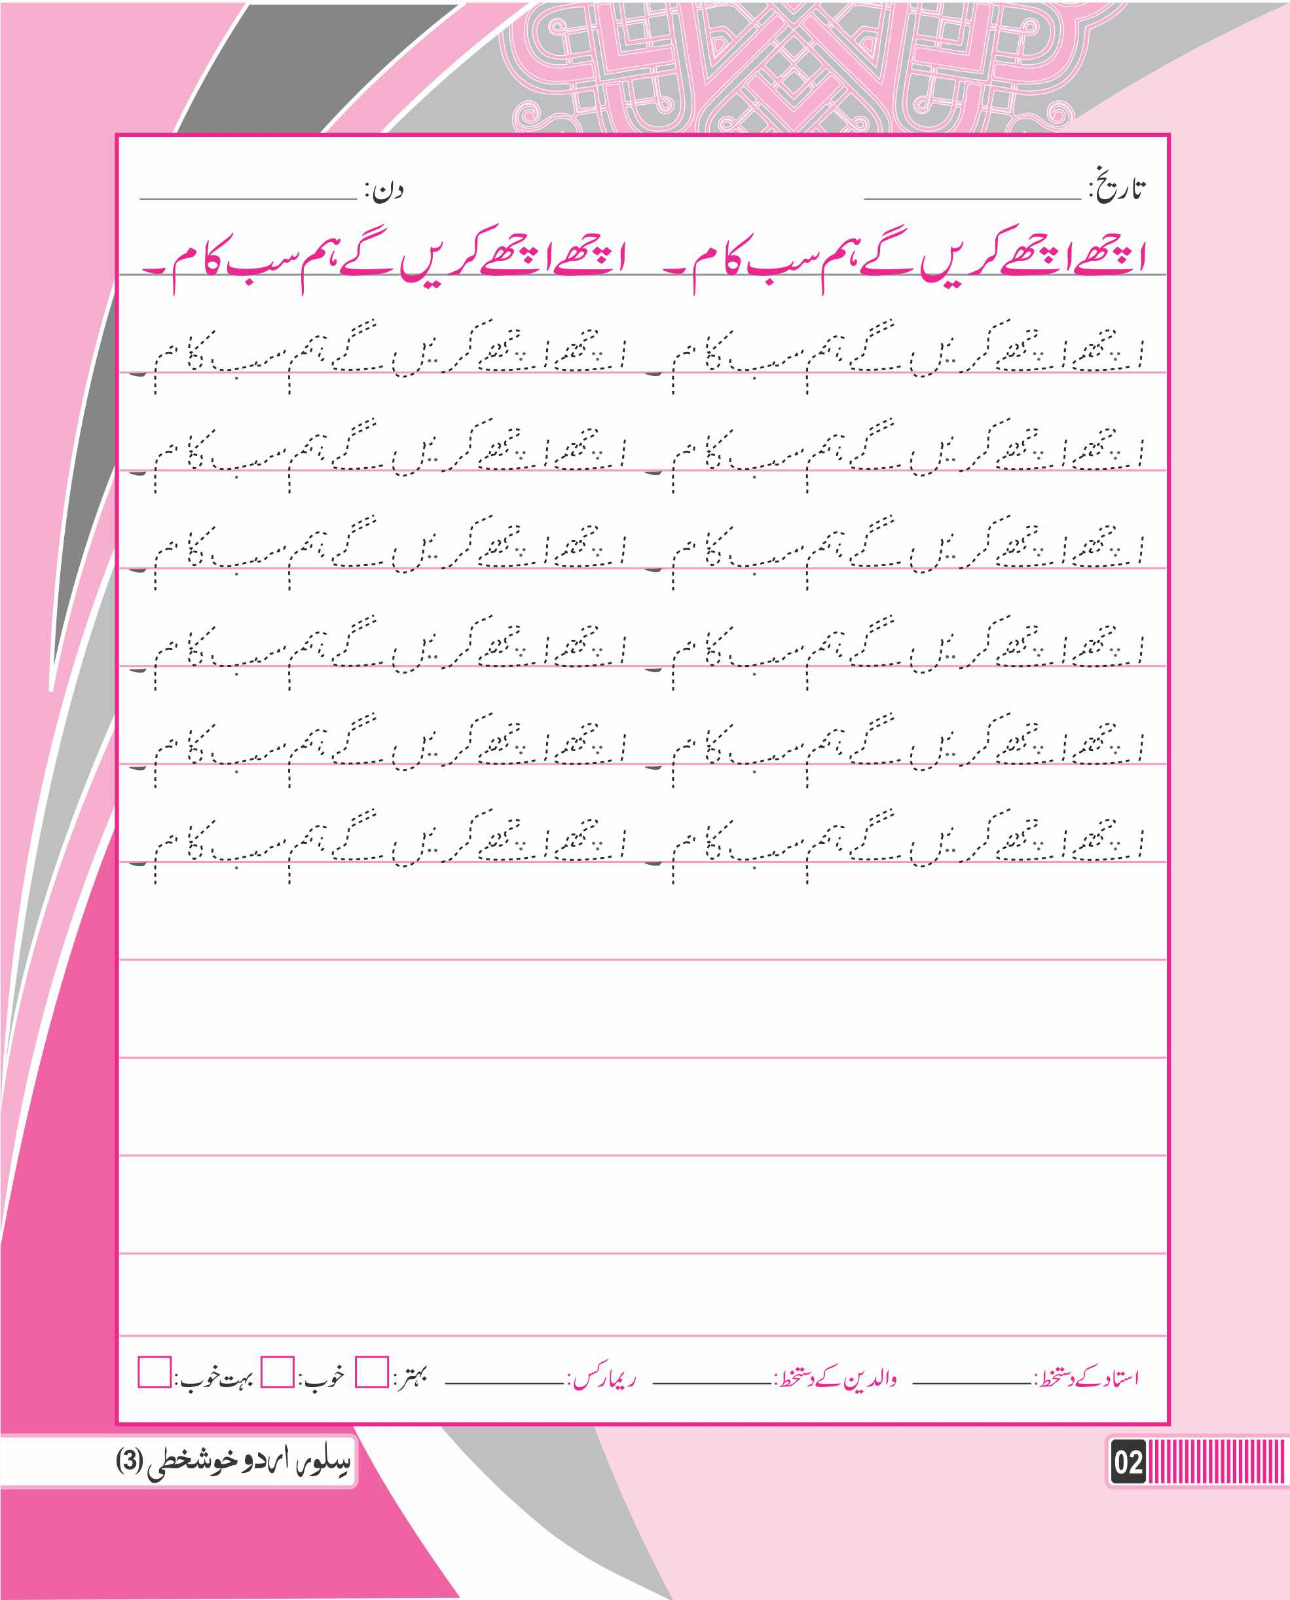 تاریخ: ____________ دن: ____________
اچھے اچھے کریں گے ہم سب کام۔ اچھے اچھے کریں گے ہم سب کام۔
اچھے اچھے کریں گے ہم سب کام۔ اچھے اچھے کریں گے ہم سب کام۔
اچھے اچھے کریں گے ہم سب کام۔ اچھے اچھے کریں گے ہم سب کام۔
اچھے اچھے کریں گے ہم سب کام۔ اچھے اچھے کریں گے ہم سب کام۔
اچھے اچھے کریں گے ہم سب کام۔ اچھے اچھے کریں گے ہم سب کام۔
اچھے اچھے کریں گے ہم سب کام۔ اچھے اچھے کریں گے ہم سب کام۔
اچھے اچھے کریں گے ہم سب کام۔ اچھے اچھے کریں گے ہم سب کام۔
استاد کے دستخط: ________ والدین کے دستخط: ________ ریمارکس: ________ بہتر: خوب: بہت خوب:
02
سلور اردو خوشخطی (3)